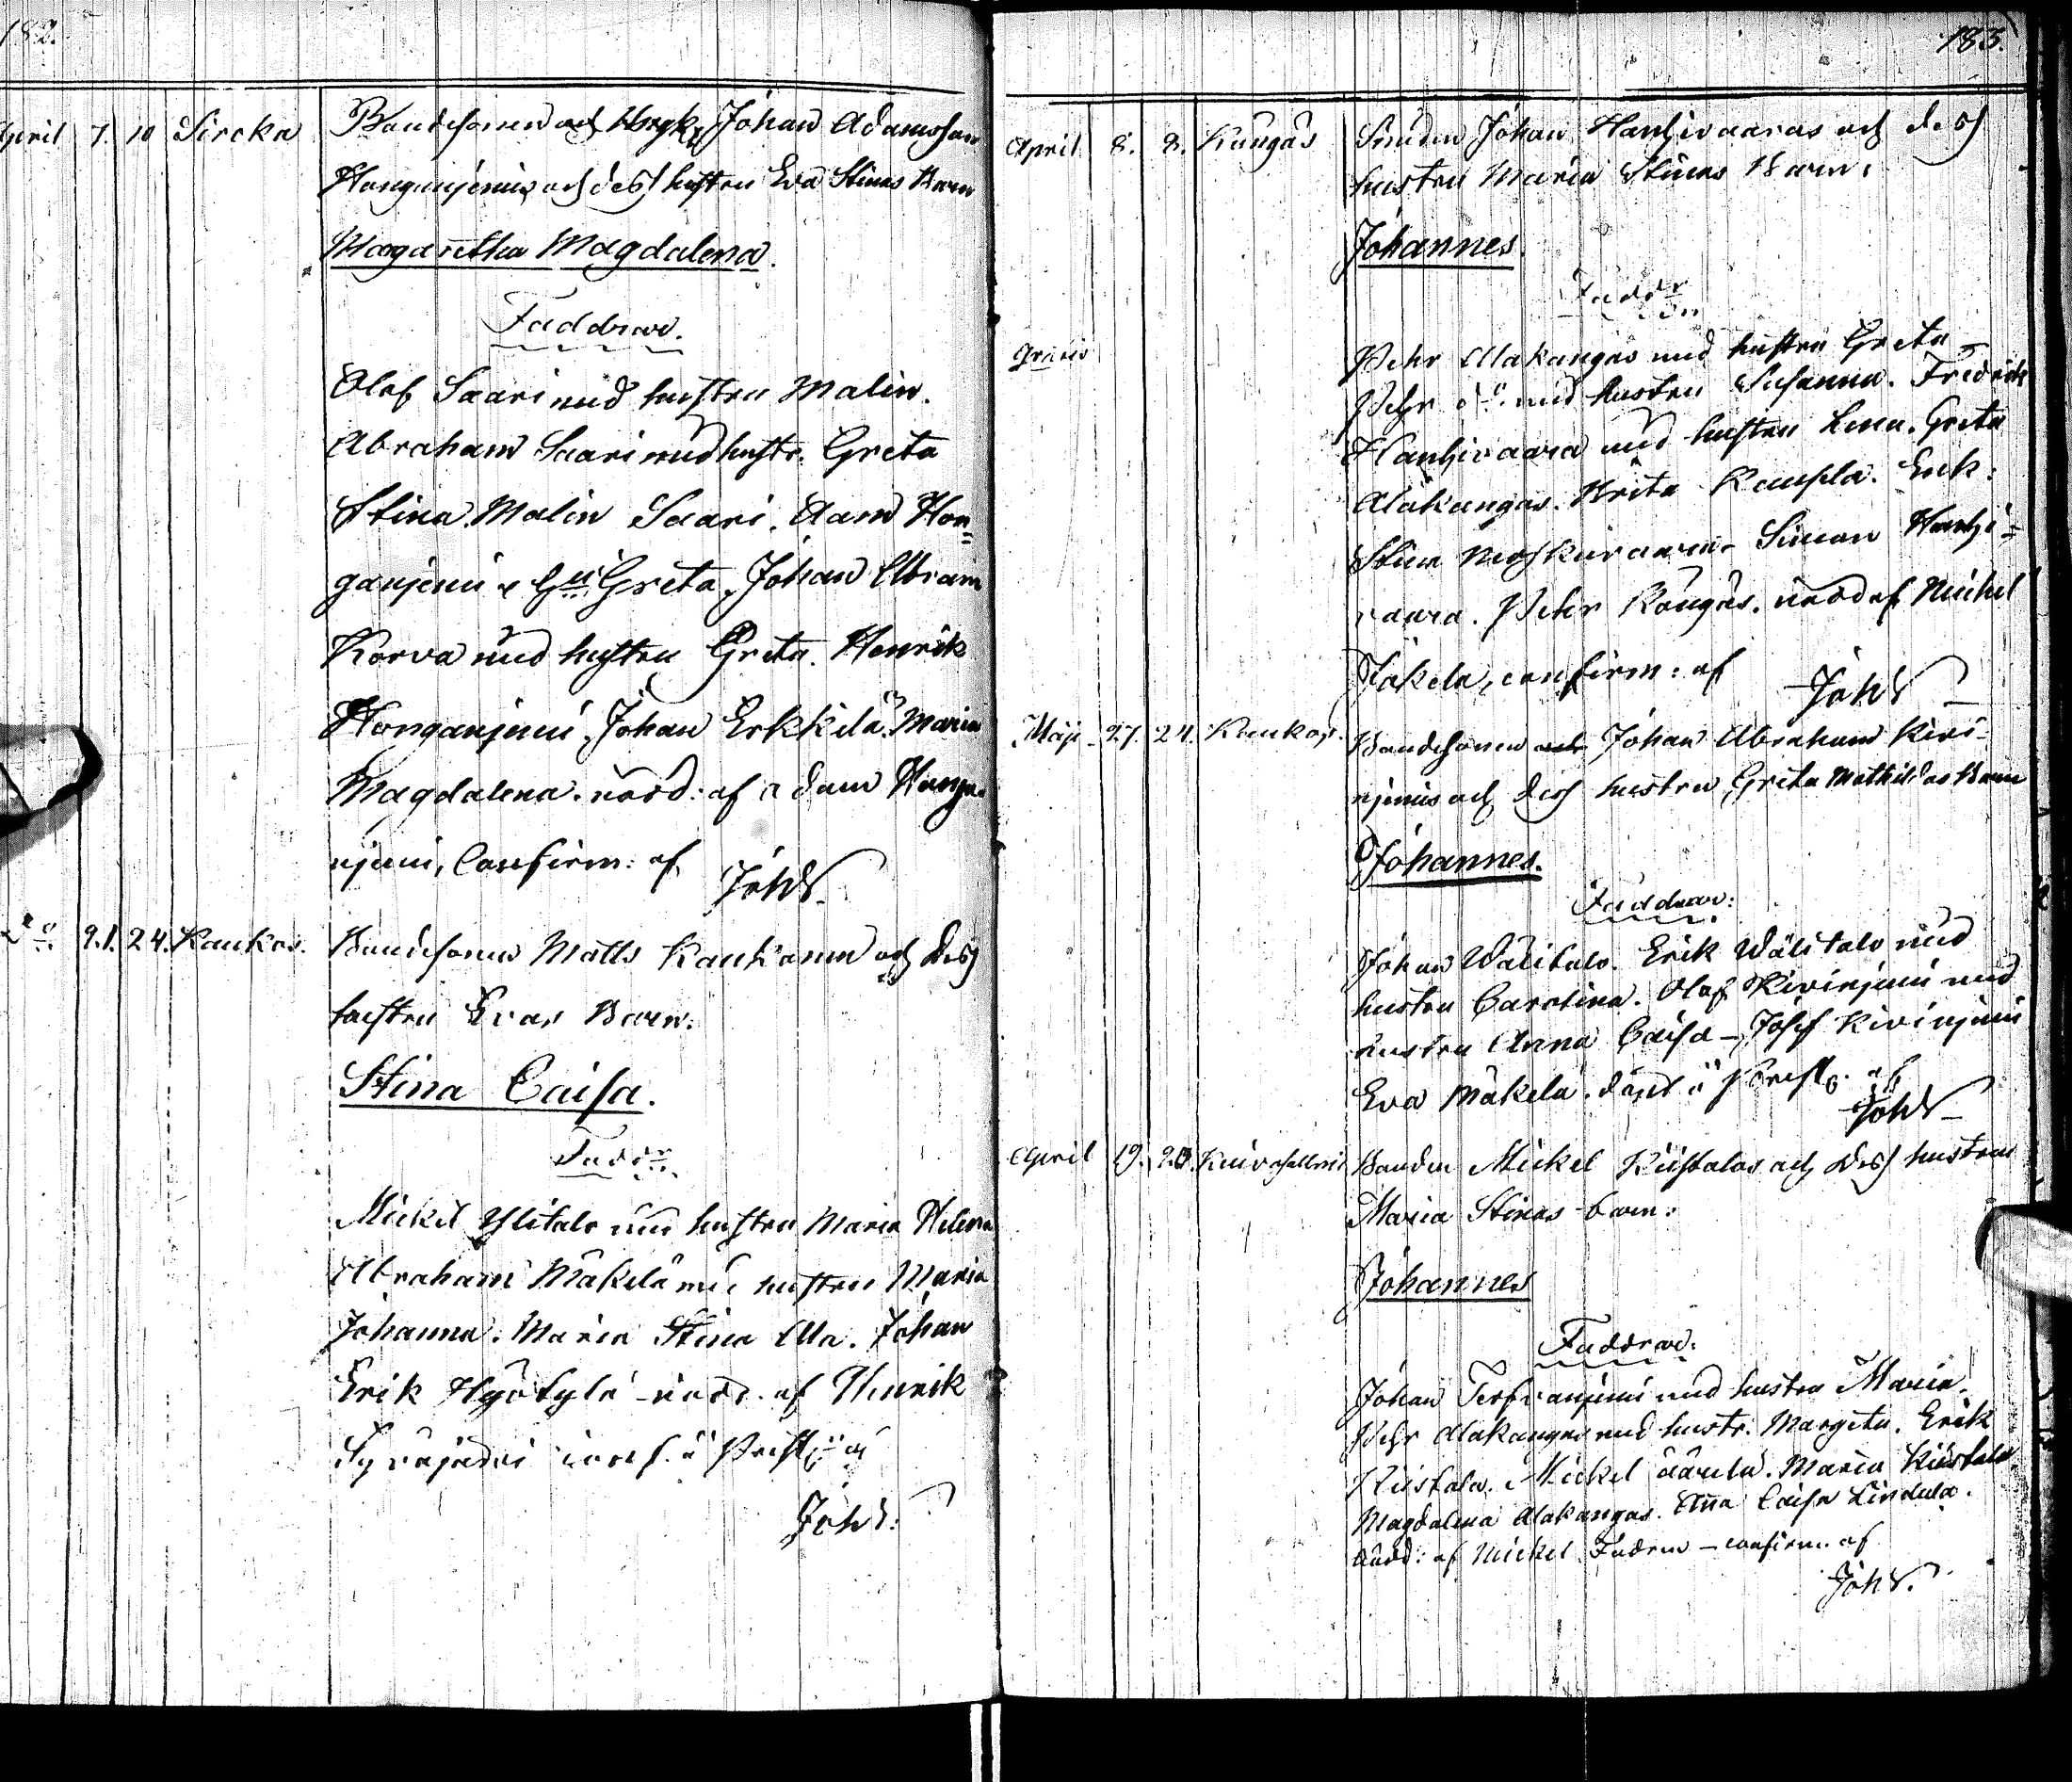 182.
April 7. 10 Sircka Bondesonen och Johan Adamsson
Honganjemis och dess hustru Eva Stinas Barn
Margaretha Magdalena.
Faddrar.
Olof Saari med hustru Malin.
Abraham Saari med hustr. Greta
Stina. Malin Saari. Adam Hon=
ganjemi Greta. Johan Abram
Korva med hustru Greta. Henrik
Honganjemi. Johan Erkkilä. Maria
Magdalena. nödd: af Adam Honga-
njemi, Confirm: af
JohW.
Do. 21. 24. Kaukos. Bondesonen Matts Kaukonen och dess
hustru Evas Barn:
Stina Caisa.
Faddr.
Mickel Ylitalo med hustru Maria Helena
Abraham Mäkelä med hustru Maria
Johanna. Maria Stina Ala. Johan
Erik Hyötylä nödd. af Henrik
Syväjärvi
JohW.
183.
April 8. 8. Kangas Johan Hanhivaaras och dess
hustru Maria Stinas Barn:
Johannes.
Faddr
Gravis Pehr Alakangas med hustru Greta
Pehr do. med hustru Susanna. Fredrik
Hanhivaara med hustru Lena. Greta
Alakangas. Brita Erik:
Stina Simon Hanhi=
vaara. Pehr Kangas. nödd af Mickel
Jäkelä, confirm: af JohW
Maji 27. 24. Kaukos. Bondesonen Johan Abraham Kivi-
njemis och dess hustru Greta Mathildas Barn
Johannes.
Faddrar:
Johan Wälitalo. Erik Wälitalo med
hustru Carolina. Olof Kivinjemi med
hustru Anna Caisa - Josef Kivinjemi
Eva Mäkelä. döpt å Prestg. af
JohW
April 19. 20. Bonden Mickel Kiistalas och dess hustrus
Maria Stinas barn:
Johannes
Faddrar:
Johan med hustru Maria.
Pehr Alakangas med hustr: Margeta. Erik
Kiistala. Mickel Maria Kiistala.
Magdalena Alakangas. Anna Caisa Lindula.
nödd: af Mickel - confirm. af
JohW.